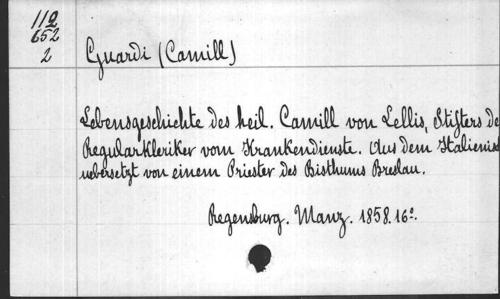 112
652
2
Guardi (Camill)
Lebensgeschichte des heil. Camill von Lellis, Stifters de
Regularkleriker vom Krankendienste. Aus dem Italienisch
uebersetzt von einem Priester des Bisthums Breslau.
Regensburg. Manz. 1858. 16°.